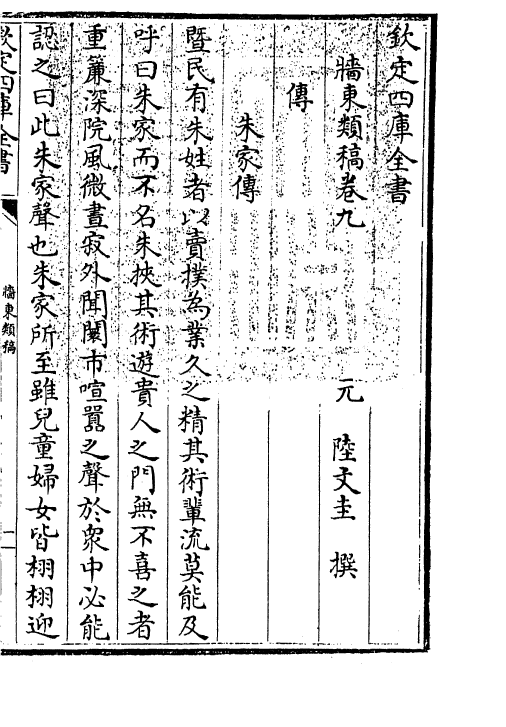 欽定四庫全書
牆東類稿卷九
元 陸文圭 撰
傳
朱家傳
暨民有朱姓者以賣撲為業久之精其術輩流莫能及
呼曰朱家而不名朱挾其術遊貴人之門無不喜之者
重簾深院風微晝寂外聞闤市喧囂之聲於衆中必能
認之曰此朱家聲也朱家所至雖兒童婦女皆栩栩迎
欽定四庫全書
牆東類稿
一